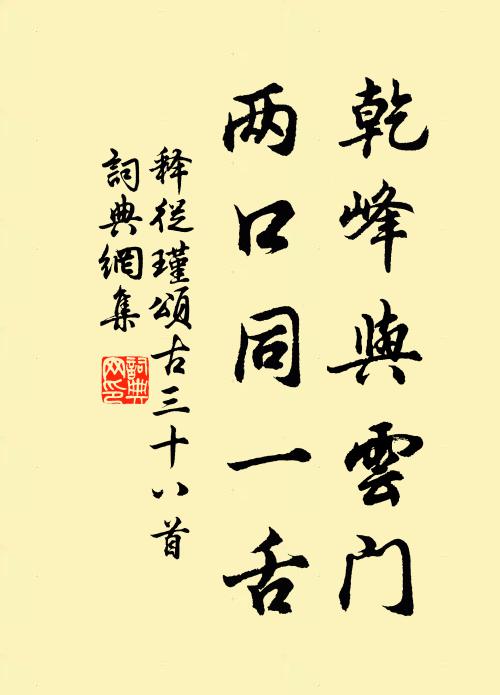 乾峰與雲門
两口同一舌
释從瑾頌古三十八首
詞典網集
詞典
网印